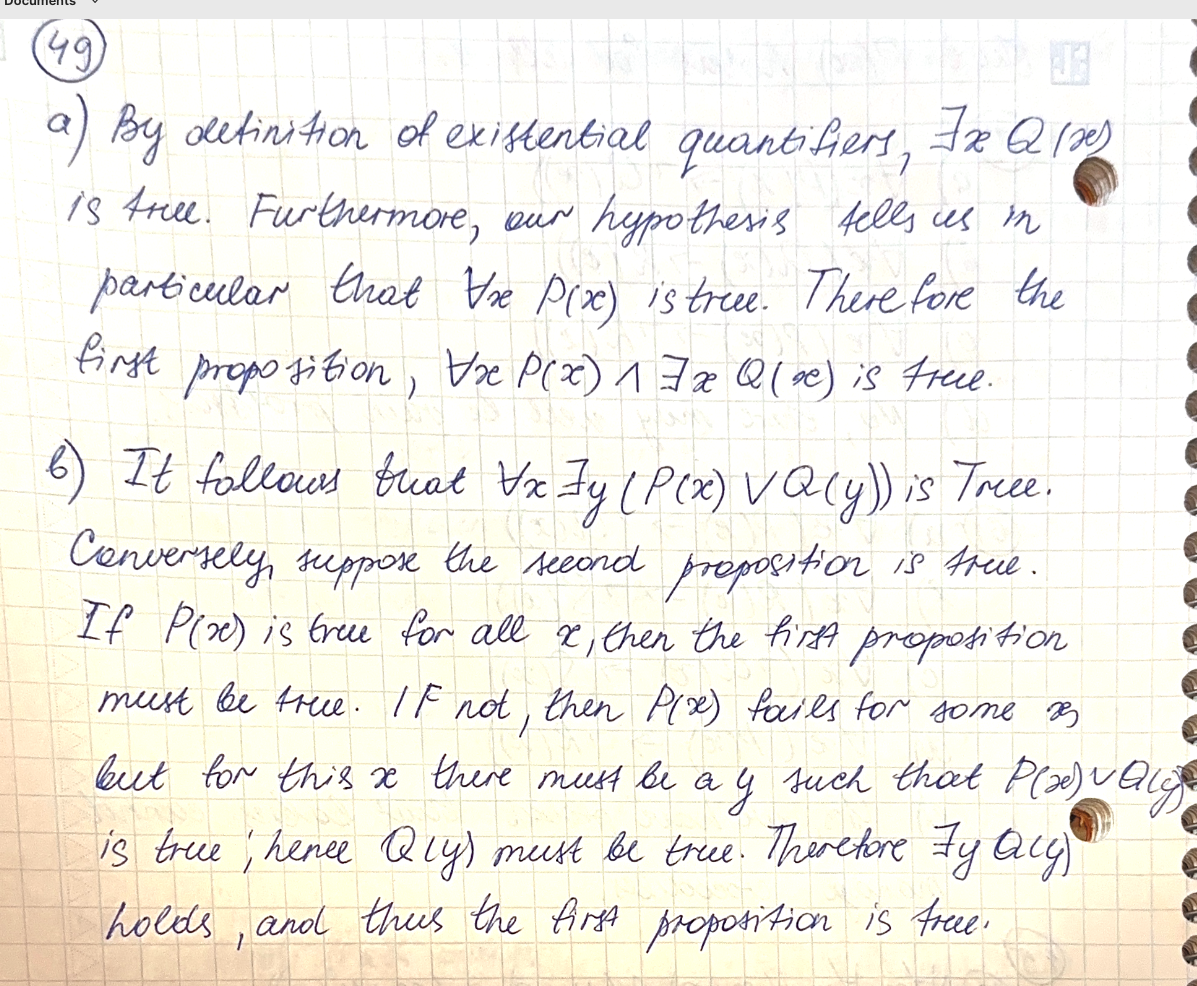 Documents
49
a) By definition of existential quantifiers, ∃x Q(x)
is true. Furthermore, our hypothesis tells us in
particular that ∀x P(x) is true. Therefore the
first proposition, ∀x P(x) ∧ ∃x Q(x) is true.
b) It follows that ∀x ∃y (P(x) ∨ Q(y)) is True.
Conversely, suppose the second proposition is true.
If P(x) is true for all x, then the first proposition
must be true. IF not, then P(x) fails for some x,
but for this x there must be a y such that P(x) ∨ Q(y)
is true; hence Q(y) must be true. Therefore ∃y Q(y)
holds, and thus the first proposition is true.